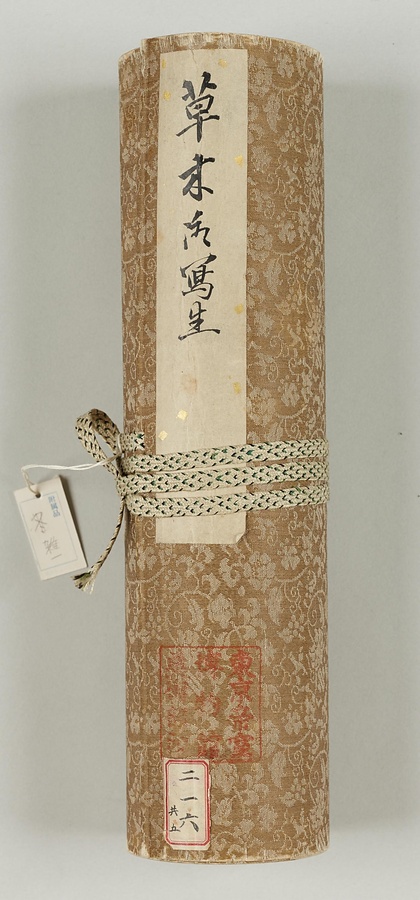 草木花寫生
冬 雜一
東京帝室
博物館
二一六
共五